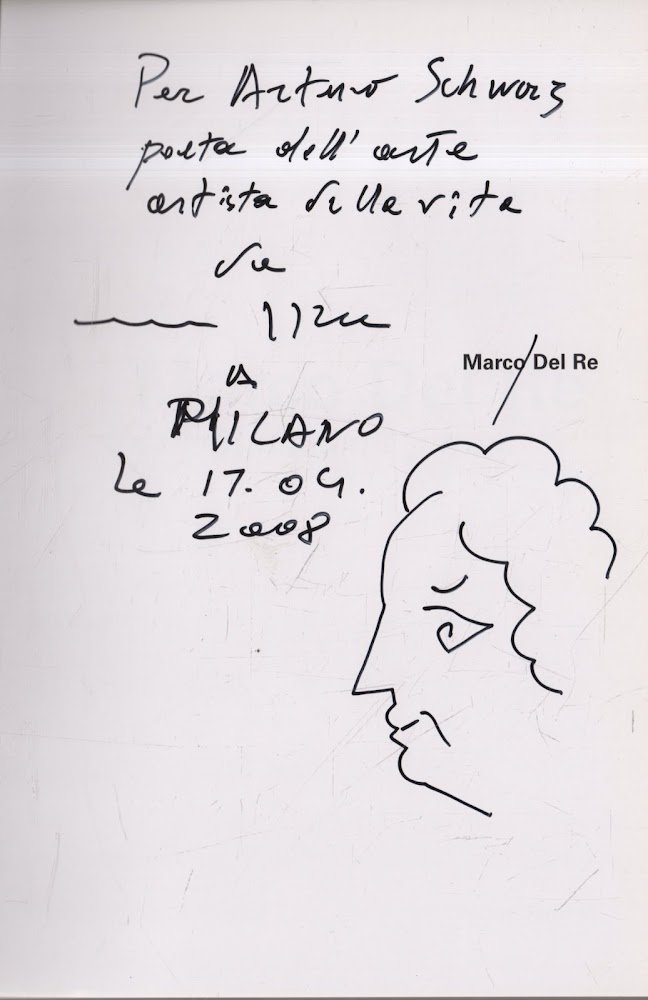 Per Arturo Schwarz
poeta dell'arte
artista della vita
da
Marco Del Re
a
MILANO
le 17. 04.
2008